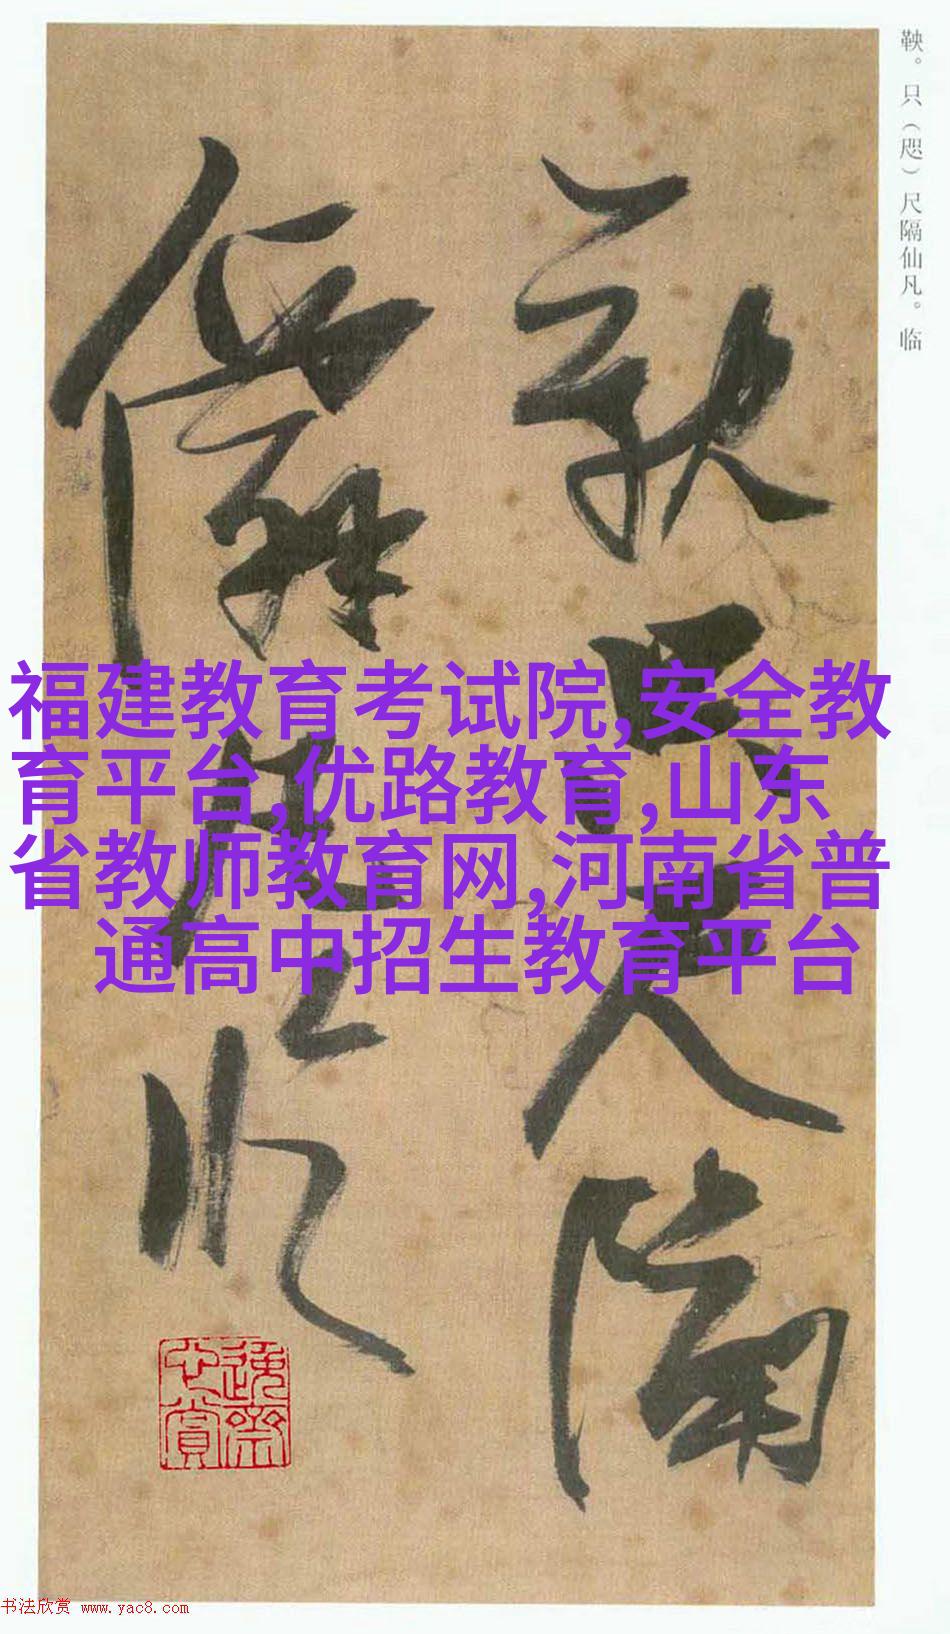 鞅。只（咫）尺隔仙凡。临
鞅只尺隔
僊凡临
福建教育考试院,安全教
育平台,优路教育,山东
省教师教育网,河南省普
通高中招生教育平台
书法欣赏 www.yac8.com